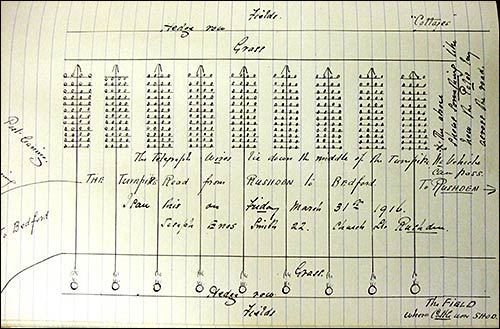 Fields.
Hedge row
"Cottages"
Grass
The Telegraph Wires lie down the middle of the Turnpike No Vehicle
can pass.
THE Turnpike Road from RUSHDEN to Bedford
To RUSHDEN →
I saw this on Friday March 31st 1916.
Joseph Enos Smith 22. Church St. Rushden.
the above
gives something like
how the Posts lay
across the road.
To Bedford
Grass.
Hedge row
Fields
The FIELD
where Cattle were SHOD.